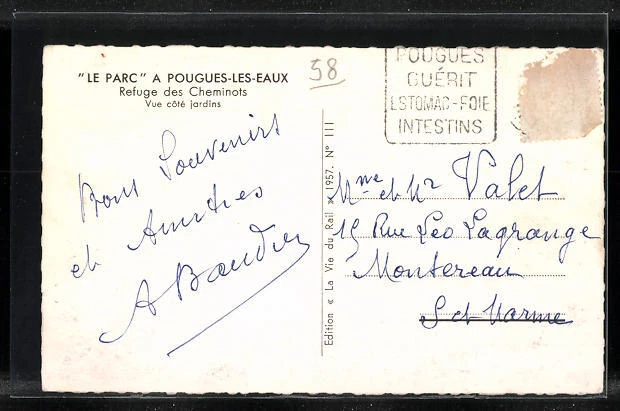 "LE PARC" A POUGUES-LES-EAUX
Refuge des Cheminots
Vue côté jardins
58
POUGUES
GUÉRIT
ESTOMAC-FOIE
INTESTINS
Bons Souvenirs
et Amitiés
A Baudin
Edition « La Vie du Rail » 1957. N° III
Mme et Mr Valet
15 Rue Leo Lagrange
Montereau
S et Marne